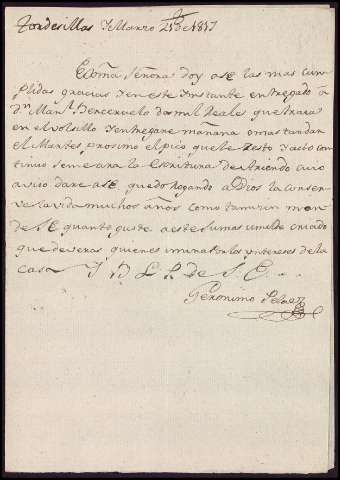 Tordesillas y Marzo 21 de 1817
Ecsma Señora doy a S E las mas cum
plidas gracias y en este ynstante entregado a
Dn Manl Berceruelo dos mil Reales que traia
en el volsillo y entregare mañana o mas tardar
el Martes, prosimo el pico que le resto y acto con
tinuo se me ara la Escritura de arriendo cuio
aviso dare a S E, quedo Rogando a Dios la conser
ve la vida muchos años como tamvien man
de S E quanto guste a este su mas umilde criado
que deveras quien es mira por los yntereses de la
casa
Geronimo Pelaez